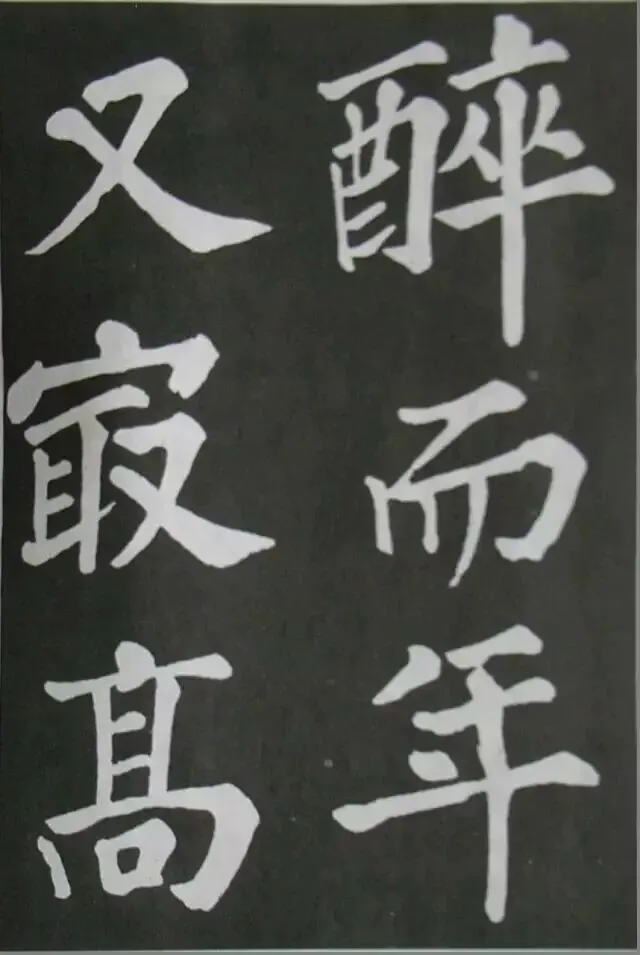 醉而年
又㝡高